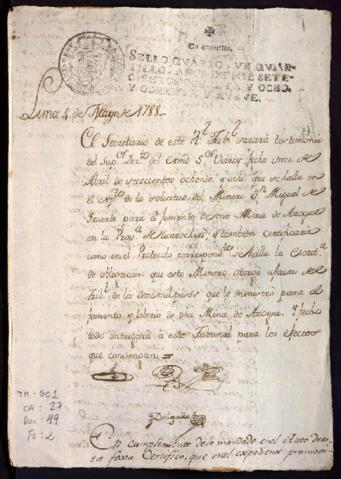 Un quartillo.
SELLO QVARTO, VN QVAR-
TILLO, AÑOS DE MIL SETE-
CIENTOS OCHENTA Y OCHO,
Y OCHENTA Y NUEVE.
Lima 4 de Mayo de 1788
El Secretario de este Rl. Tribl. sacará testimonio
del Supor. Decto. del Exmo Sor. Virrey fecha once de
Abril de setecientos ochenta y ocho que se halla en
el Expte. de la solicitud del Minero Dn. Miguel de
Iriarte para el fomento de una Mina de Azogue
en la Prova. de Huarochirí; y tambien certificará
como en el Protocolo correspondte. se halla la Escrita.
de obligacion que este Minero otorgó a favor de este
Tribl. de los dos mil pesos que le ministró para el
fomento y laborio de dha Mina de Azogue. Y fecho
todo entregará à este Tribunal para los efectos
que convengan
Delgado
En cumplimiento de lo mandado en el Auto de es-
ta foxa Certifico, que en el expediente promovi-
TM-GO1
CA: 27
Doc: 49
Fs: 2